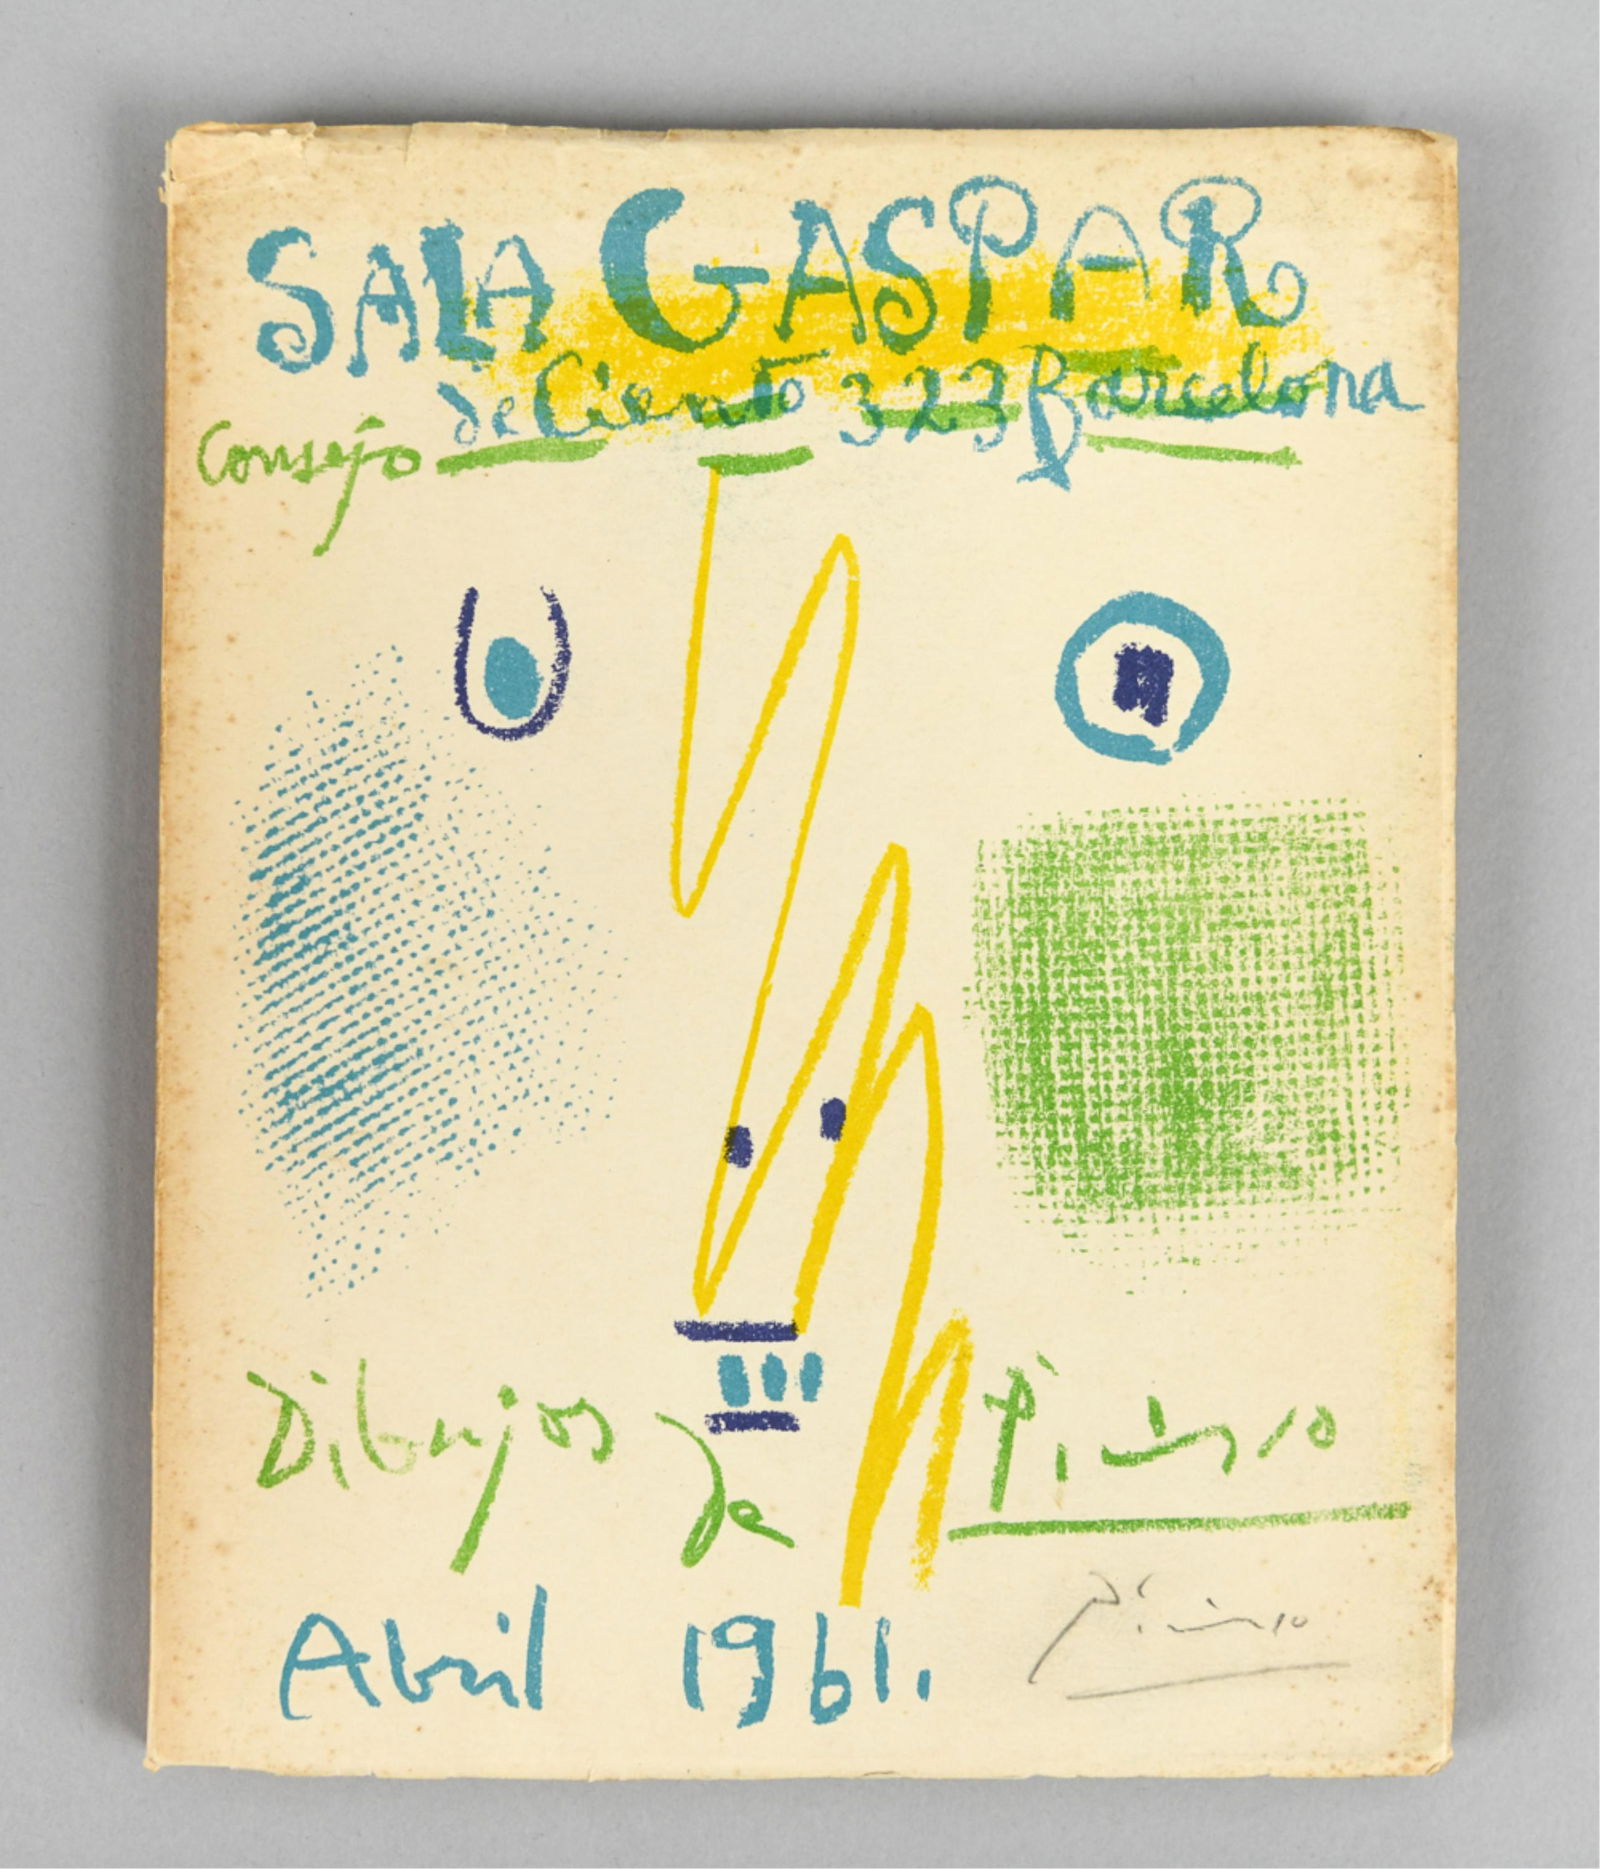 SALA GASPAR
Consejo de Ciento 323 Barcelona
Dibujos de Picasso
Abril 1961.
Picasso